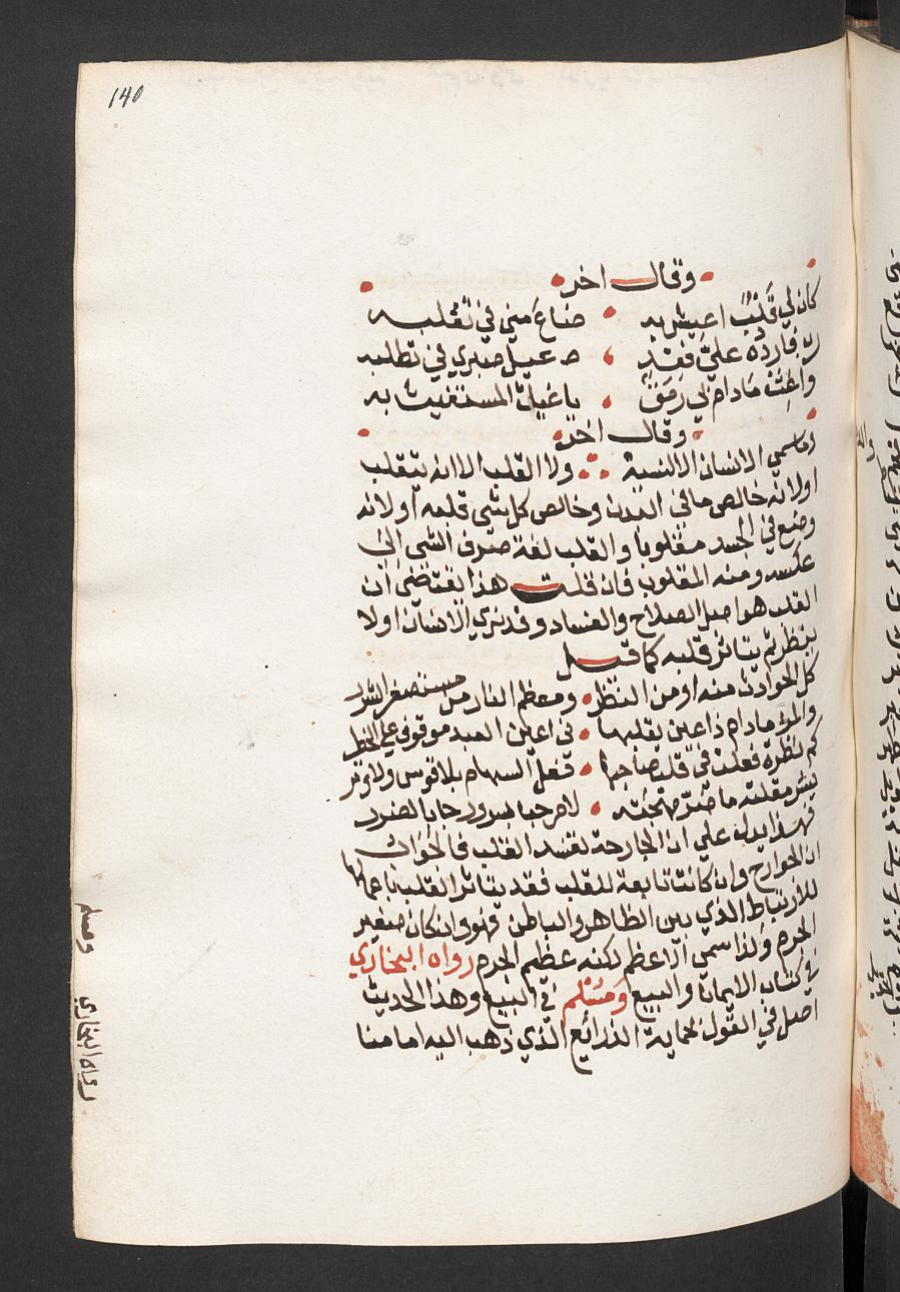 140
وقال اخر
كان لي قلب اعيش به ضاع مني في تقلبه
رب فاردده علي فقد عيل صبري في تطلبه
واغث مادام لي رمق يا غياث المستغيث به
وقال اخر
وماسمي الانسان الا لنسيه ولا القلب الا انه يتقلب
اولانه خالص مافي البدن وخالص كل شي قلبه اولانه
وضع في الجسد مقلوبا والقلب لغة صرف الشي الى
عكسه ومنه المقلوب فان قلت هذا يقتضي ان
القلب هو اصل الصلاح والفساد وقد نري الانسان اولا
ينظر ثم يتاثر قلبه كما قيل
كل الحوادث مبداها من النظر ومعظم النار من مستصغر الشرر
والمرؤ مادام ذاعين يقلبها في اعين العيد موقوف علي الخطر
كم نظرة فعلت في قلب صاحبها فعل السهام بلا قوس ولا وتر
يسر مقلته ما ضر مهجته لا مرحبا بسرور جا بالضرر
فهذا يدل علي ان الجارحة تفسد القلب فالجواب
ان الجوارح وان كانت تابعة للقلب فقد يتاثر القلب باعمالها
للارتباط الذي بين الظاهر والباطن فهو وان كان صغير
الجرم ولذا سمي الاعظم لكنه عظيم الجرم رواه البخاري
في كتاب الايمان والبيع ومسلم في البيع وهذا الحديث
اصل في القول بحماية الذرائع الذي ذهب اليه امامنا
رواه البخاري ومسلم